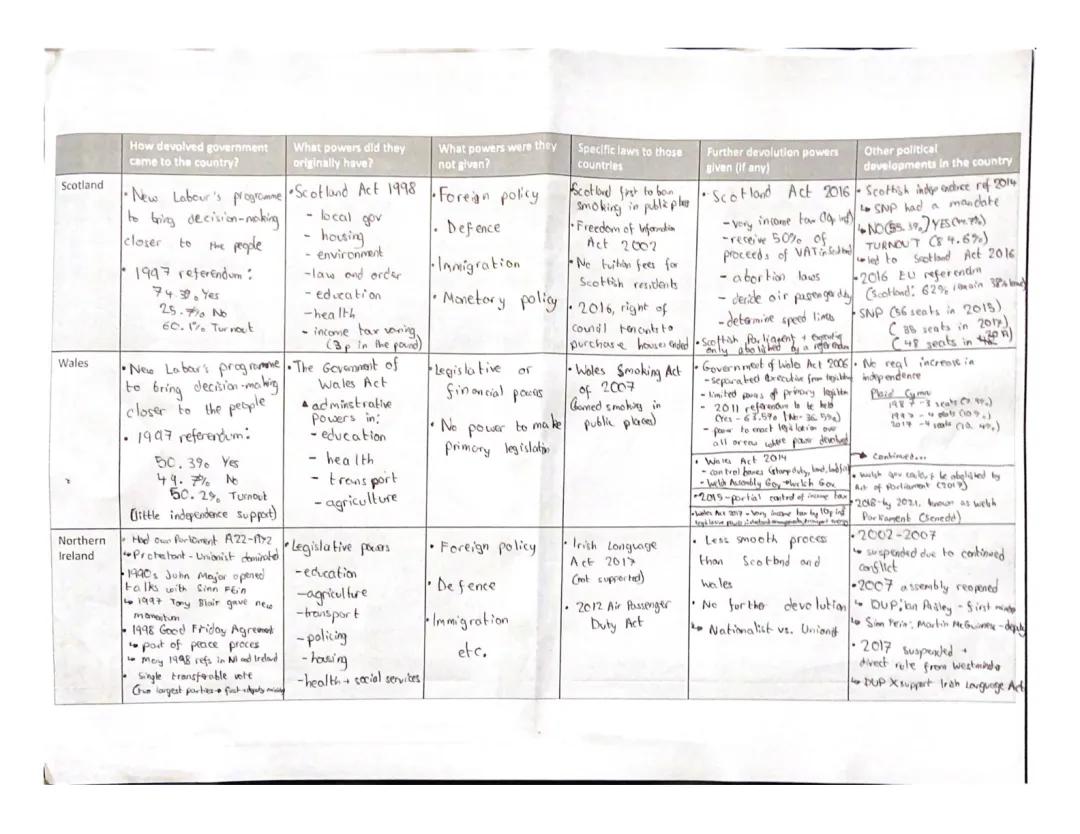 How devolved government
came to the country?
What powers did they
originally have?
What powers were they
not given?
Specific laws to those
countries
Further devolution powers
given (if any)
Other political
developments in the country
Scotland
• New Labour's programme
to bring decision-making
closer to the people
• 1997 referendum:
74.3% Yes
25.7% No
60.1% Turnout
• Scotland Act 1998
- local gov
- housing
- environment
- law and order
- education
- health
- income tax varying
(3p in the pound)
• Foreign policy
• Defence
• Immigration
• Monetary policy
Scotland first to ban
smoking in public places
• Freedom of Information
Act 2002
• No tuition fees for
Scottish residents
• 2016, right of
council tenants to
purchase houses ended
• Scotland Act 2016
- vary income tax (10p in £)
- receive 50% of
proceeds of VAT in Scotland
- abortion laws
- decide air passenger duty
- determine speed limits
• Scottish Parliament + executive
only abolished by a referendum
• Scottish independence ref 2014
↳ SNP had a mandate
↳ NO (55.3%) YES (44.7%)
TURNOUT (84.6%)
↳ led to Scotland Act 2016
• 2016 EU referendum
(Scotland: 62% remain 38% leave)
• SNP (56 seats in 2015)
(35 seats in 2017)
(48 seats in
Wales
• New Labour's programme
to bring decision-making
closer to the people
• 1997 referendum:
50.3% Yes
49.7% No
50.2% Turnout
(little independence support)
• The Government of
Wales Act
adminstrative
powers in:
- education
- health
- transport
- agriculture
• Legislative or
financial powers
• No power to make
primary legislation
• Wales Smoking Act
of 2007
(banned smoking in
public places)
• Government of Wales Act 2006
- separated executive from legislature
- limited powers of primary legislation
- 2011 referendum to be held
(Yes - 63.5% | No - 36.5%)
- power to enact legislation over
all areas where power devolved
• Wales Act 2014
- control taxes (stamp duty, land, landfill)
- Welsh Assembly Gov → Welsh Gov
• 2015 - partial control of income tax
• Wales Act 2017 - vary income tax by 10p in £
• No real increase in
independence
Plaid Cymru
1987 - 3 seats (7.9%)
1997 - 4 seats (10%)
2017 - 4 seats (10.4%)
Continued...
• Welsh gov cannot be abolished by
Act of Parliament (2017)
• 2018 - by 2021, known as Welsh
Parliament (Senedd)
Northern
Ireland
• Had own Parliament 1922-1972
↳ Protestant - Unionist dominated
• 1990s John Major opened
talks with Sinn Féin
↳ 1997 Tony Blair gave new
momentum
• 1998 Good Friday Agreement
↳ part of peace process
↳ May 1998 refs in NI and Ireland
• Single transferable vote
(two largest parties → first + deputy minister
• Legislative powers
- education
- agriculture
- transport
- policing
- housing
- health + social services
• Foreign policy
• Defence
• Immigration
etc.
• Irish Language
Act 2017
(not supported)
• 2012 Air Passenger
Duty Act
• Less smooth process
than Scotland and
Wales
• No further devolution
↳ Nationalist vs. Unionst
• 2002-2007
↳ suspended due to continued
conflict
• 2007 assembly reopened
↳ DUP: Ian Paisley - first minister
↳ Sinn Fein: Martin McGuinness - deputy
• 2017 suspended +
direct rule from Westminster
↳ DUP X support Irish Language Act